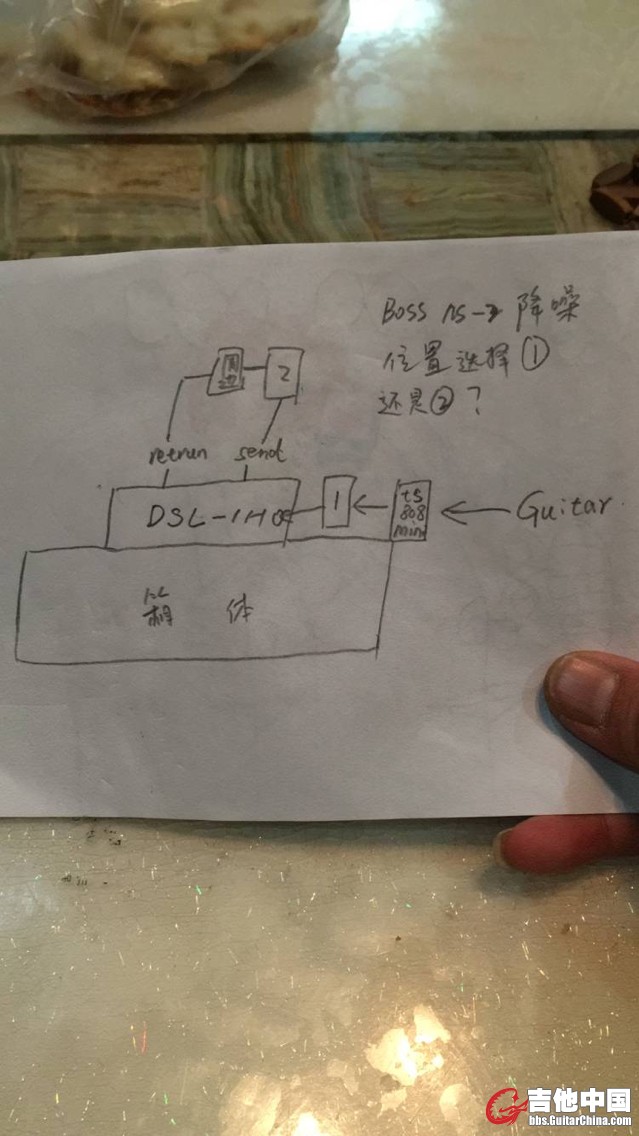 Boss ns-2 降噪
位置选择①
还是②?
周边
2
retrun
send
DSL-1H
1
ts
808
mini
Guitar
箱 体
吉他中国
bbs.GuitarChina.com